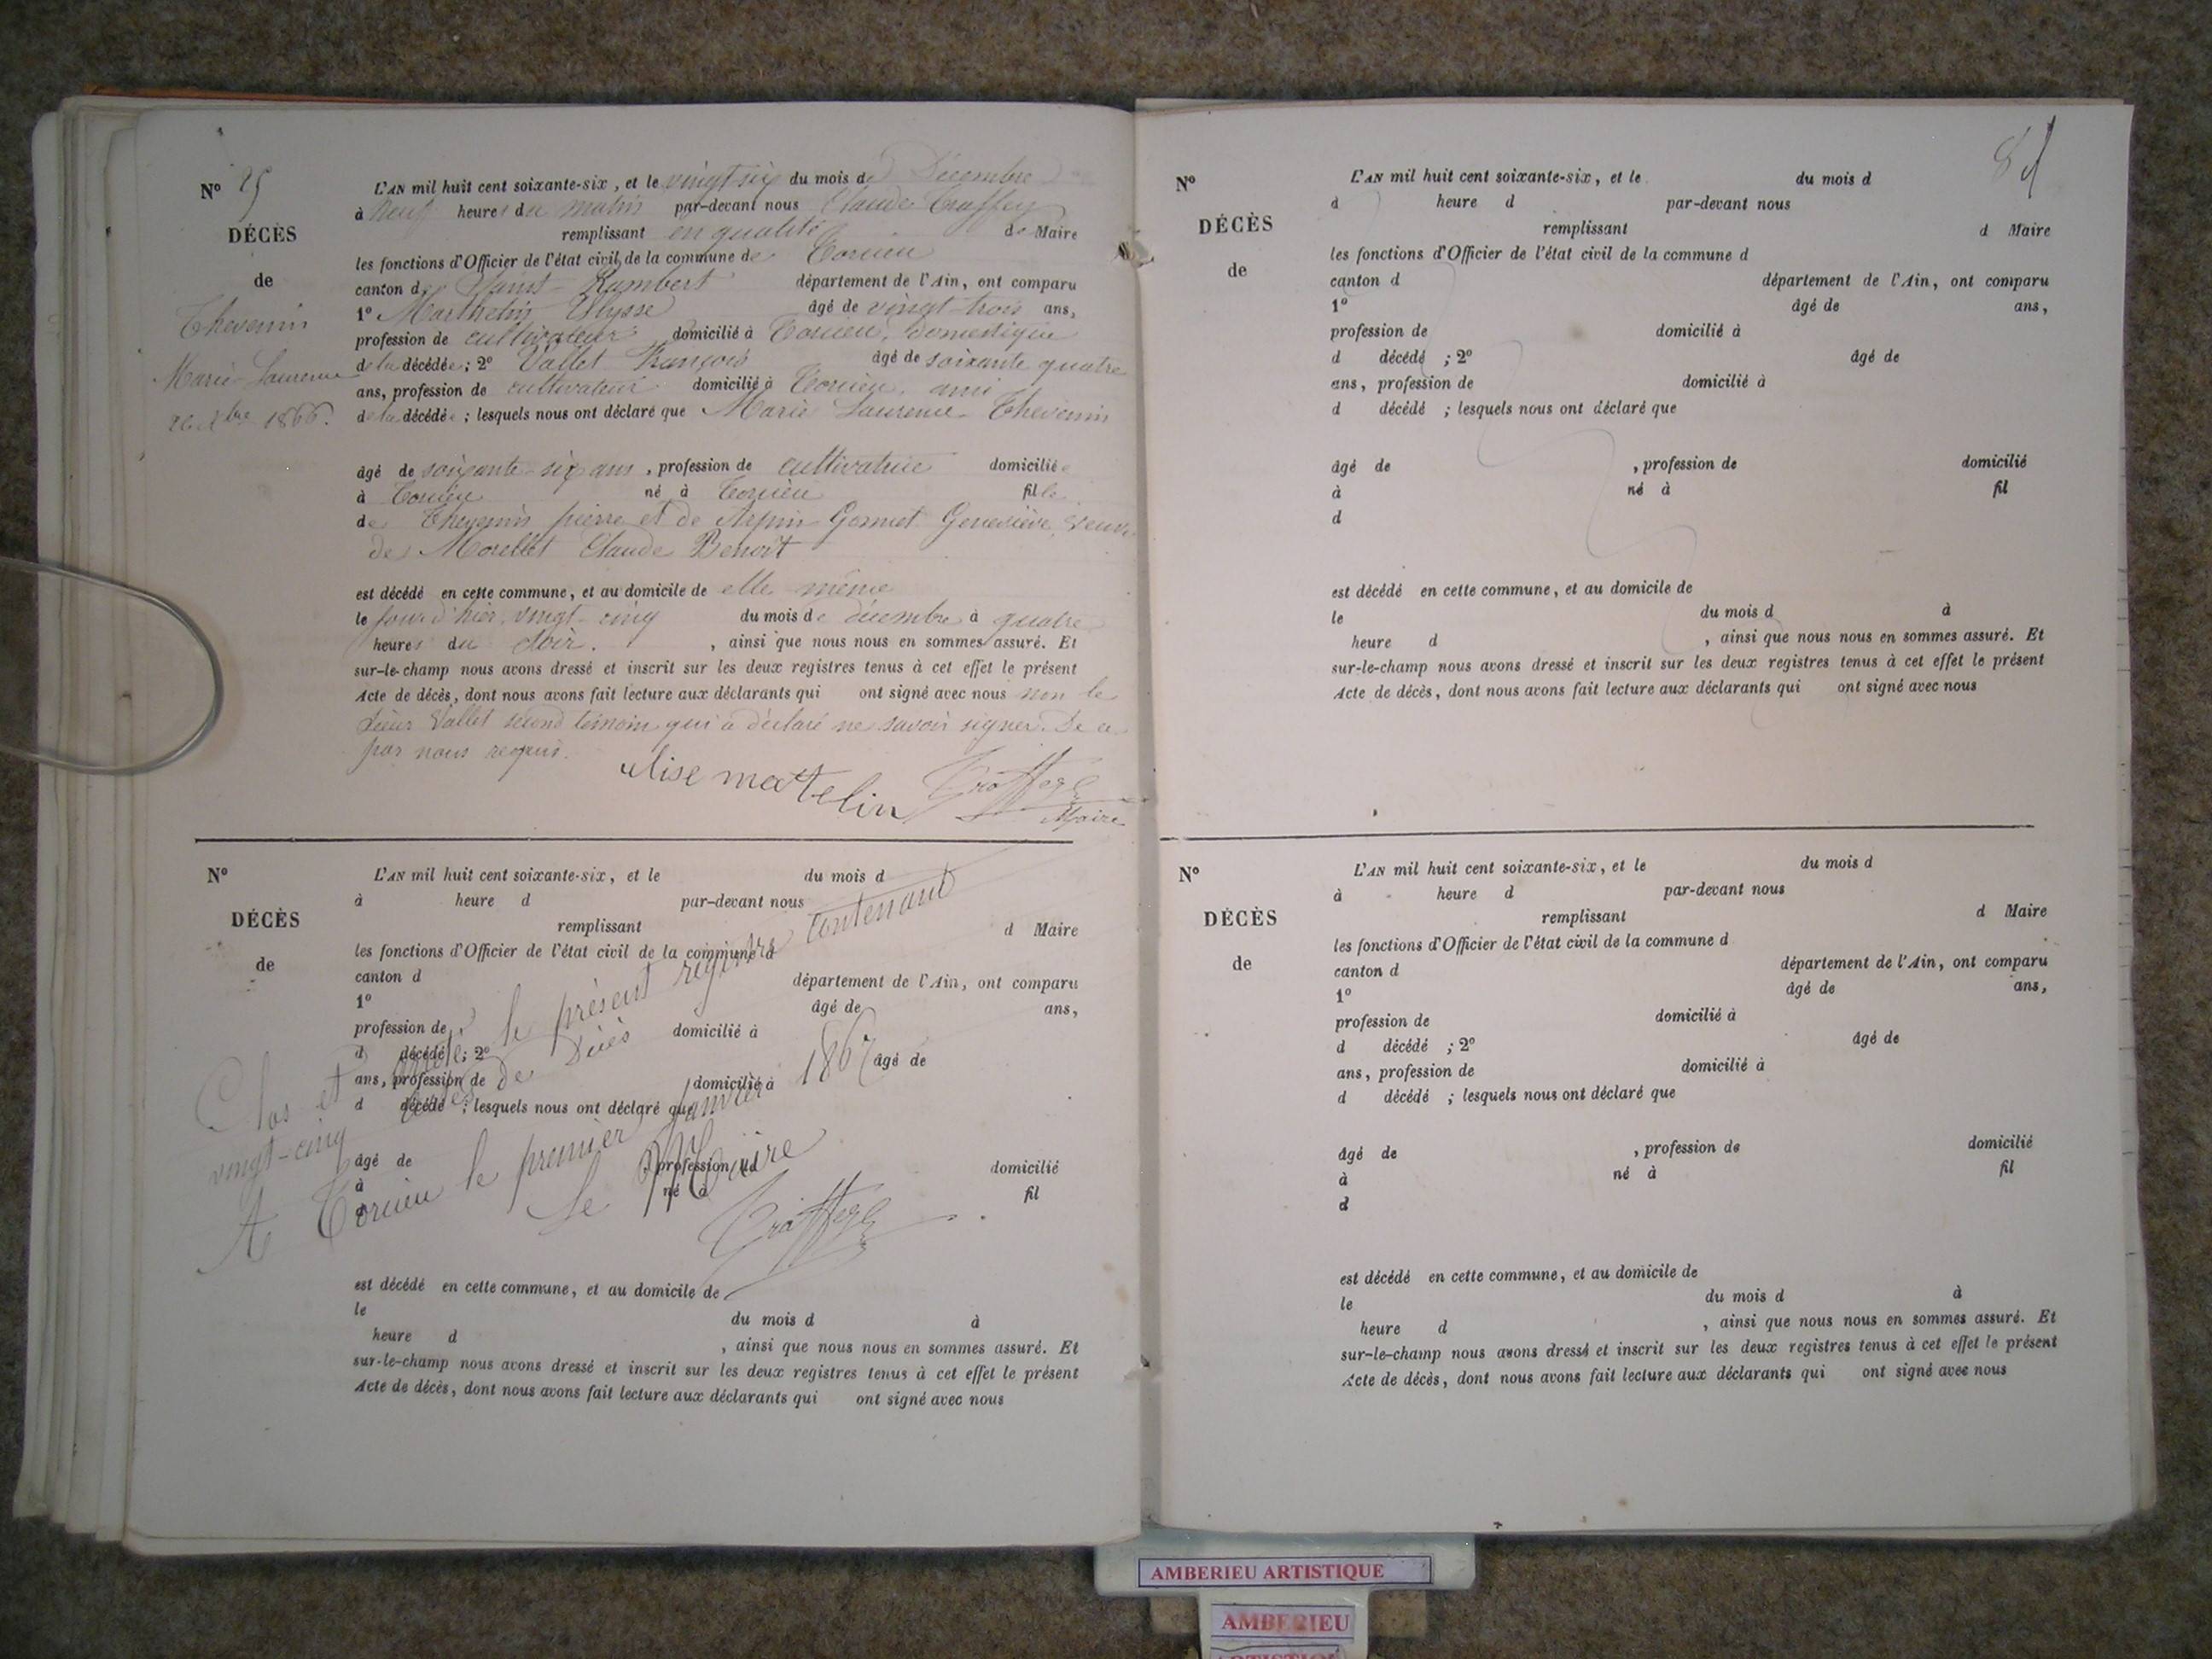 N° 25
DÉCÈS
de
Thevenin
Marie-Laurence
26 Xbre 1866.
L'AN mil huit cent soixante-six, et le vingt six du mois de Décembre
à neuf heures du matin par-devant nous Claude Traffey
remplissant en qualité de Maire
les fonctions d'Officier de l'état civil de la commune de Torcieu
canton de Saint-Rambert département de l'Ain, ont comparu
1° Marthelin Ulysse âgé de vingt-trois ans,
profession de cultivateur domicilié à Torcieu, domestique
de la décédée ; 2° Vallet François âgé de soixante quatre
ans, profession de cultivateur domicilié à Torcieu, ami
de la décédée ; lesquels nous ont déclaré que Marie Laurence Thevenin
âgé de soixante-six ans, profession de cultivatrice domiciliée
à Torcieu né à Torcieu fille
de Thevenin pierre et de Arpin Gonnet Geneviève, veuve
de Morellet Claude Benoît
est décédé en cette commune, et au domicile de elle même
le jour d'hier, vingt-cinq du mois de décembre à quatre
heures du soir. , ainsi que nous nous en sommes assuré. Et
sur-le-champ nous avons dressé et inscrit sur les deux registres tenus à cet effet le présent
Acte de décès, dont nous avons fait lecture aux déclarants qui ont signé avec nous non le
sieur Vallet second témoin qui a déclaré ne savoir signer. De ce
par nous requis.
ulise matelin Traffey
Maire
N°
DÉCÈS
de
L'AN mil huit cent soixante-six, et le du mois d
à heure d par-devant nous
remplissant d Maire
les fonctions d'Officier de l'état civil de la commune d
canton d département de l'Ain, ont comparu
1° âgé de ans,
profession de domicilié à
d décédé ; 2° âgé de
ans, profession de domicilié à
d décédé ; lesquels nous ont déclaré que
âgé de , profession de domicilié
à né à fil
d
est décédé en cette commune, et au domicile de
le du mois d à
heure d , ainsi que nous nous en sommes assuré. Et
sur-le-champ nous avons dressé et inscrit sur les deux registres tenus à cet effet le présent
Acte de décès, dont nous avons fait lecture aux déclarants qui ont signé avec nous
Clos et arrêté le présent registre contenant
vingt-cinq actes de Décès
A Torcieu le premier Janvier 1867
Le Maire
Traffey
8
N°
DÉCÈS
de
L'AN mil huit cent soixante-six, et le du mois d
à heure d par-devant nous
remplissant d Maire
les fonctions d'Officier de l'état civil de la commune d
canton d département de l'Ain, ont comparu
1° âgé de ans,
profession de domicilié à
d décédé ; 2° âgé de
ans, profession de domicilié à
d décédé ; lesquels nous ont déclaré que
âgé de , profession de domicilié
à né à fil
d
est décédé en cette commune, et au domicile de
le du mois d à
heure d , ainsi que nous nous en sommes assuré. Et
sur-le-champ nous avons dressé et inscrit sur les deux registres tenus à cet effet le présent
Acte de décès, dont nous avons fait lecture aux déclarants qui ont signé avec nous
N°
DÉCÈS
de
L'AN mil huit cent soixante-six, et le du mois d
à heure d par-devant nous
remplissant d Maire
les fonctions d'Officier de l'état civil de la commune d
canton d département de l'Ain, ont comparu
1° âgé de ans,
profession de domicilié à
d décédé ; 2° âgé de
ans, profession de domicilié à
d décédé ; lesquels nous ont déclaré que
âgé de , profession de domicilié
à né à fil
d
est décédé en cette commune, et au domicile de
le du mois d à
heure d , ainsi que nous nous en sommes assuré. Et
sur-le-champ nous avons dressé et inscrit sur les deux registres tenus à cet effet le présent
Acte de décès, dont nous avons fait lecture aux déclarants qui ont signé avec nous
AMBERIEU ARTISTIQUE
AMBERIEU
ARTISTIQUE